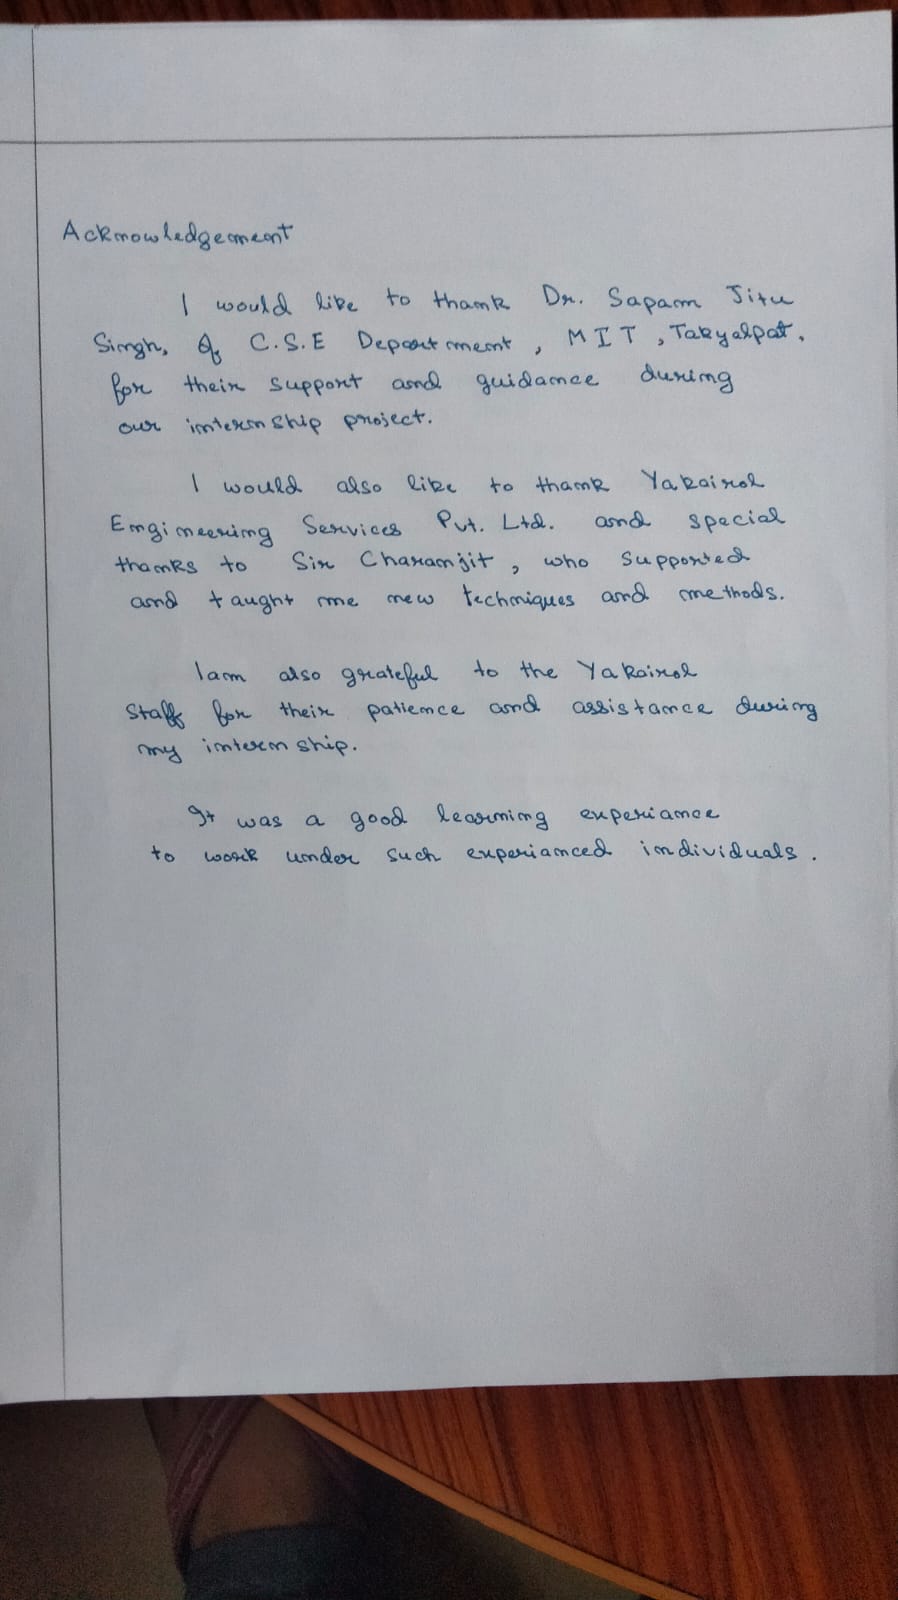 Acknowledgement
I would like to thank Dr. Sapam Jitu
Singh, Of C.S.E Department, MIT, Takyelpat,
for their support and guidance during
our internship project.
I would also like to thank Yakairol
Engineering Services Pvt. Ltd. and special
thanks to Sir Charamjit, who supported
and taught me new techniques and methods.
I am also grateful to the Yakairol
Staff for their patience and assistance during
my internship.
It was a good learning experiance
to work under such experianced individuals.